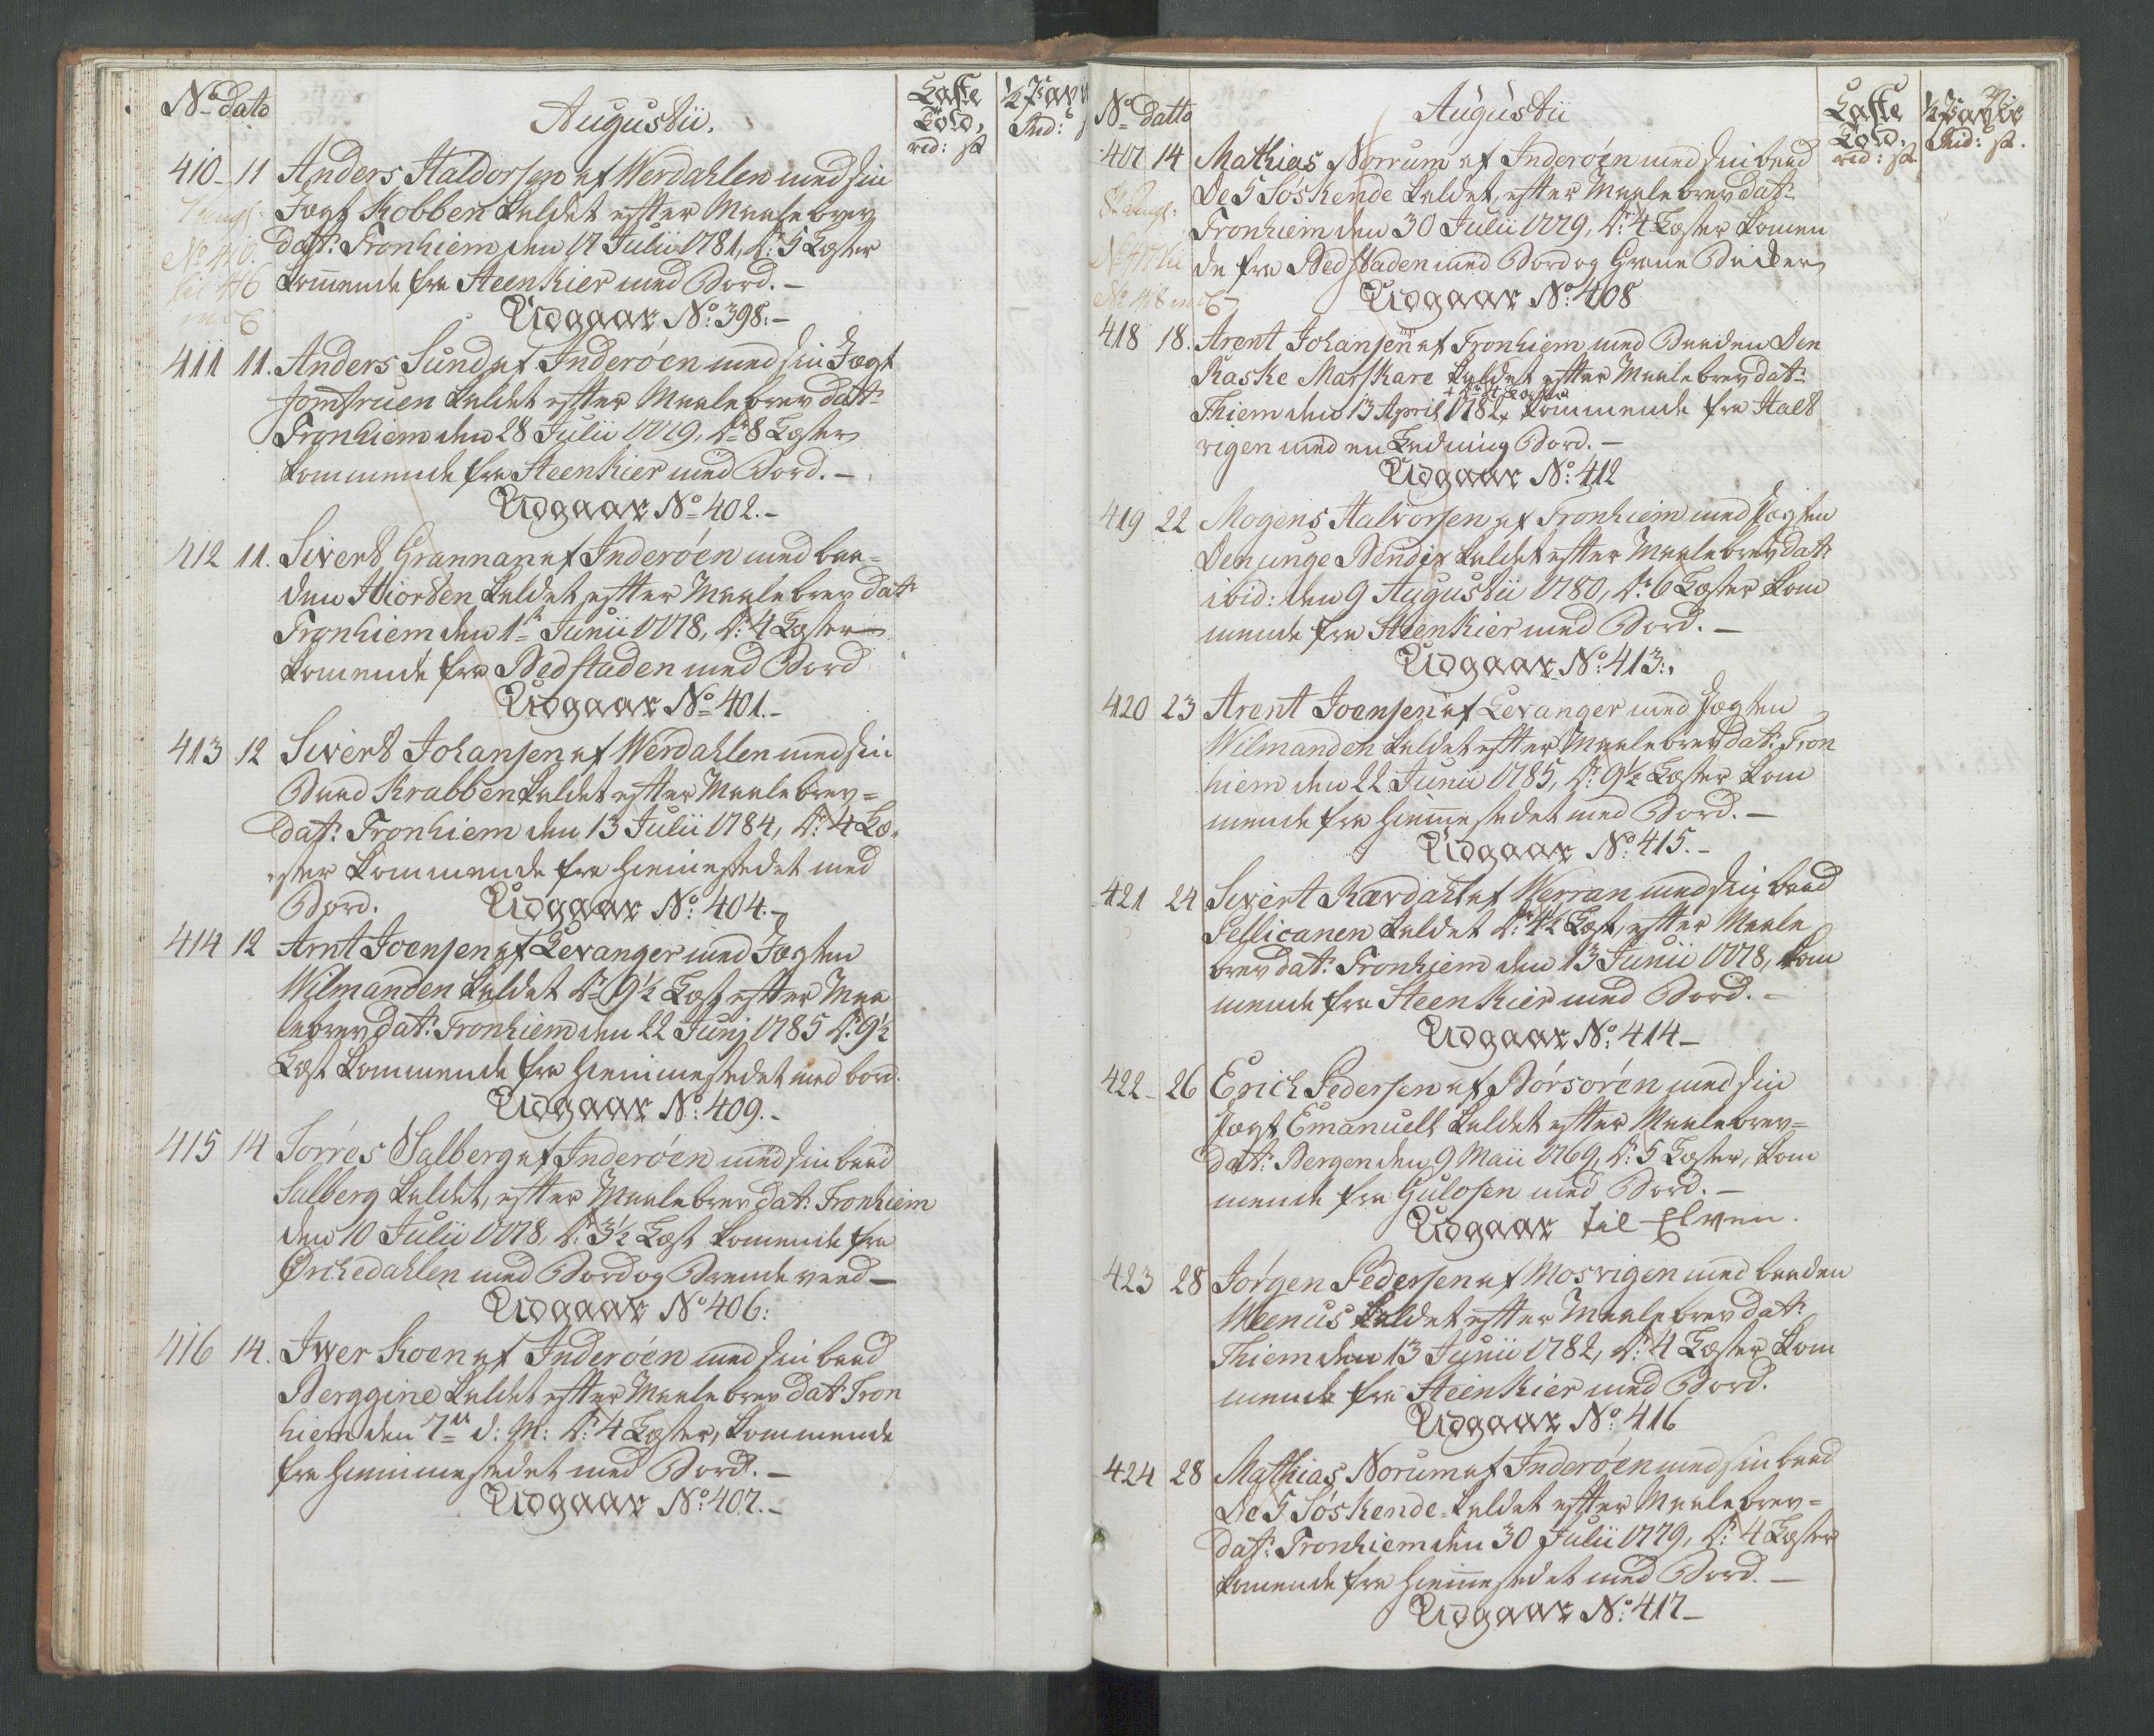 No dato
Augustii.
Laste
Told,
rd: s
410 11 Anders Haldorsen af Werdahlen med sin
Jagt Kobben kaldet efter Maalebrev
No 410.
til 416
dat: Tronhiem den 17 Julii 1781, Dr: 5 Læster
kommende fra Steenkier med Bord. –
Udgaar No: 398. –
411 11. Anders Sund af Inderöen med sin Jagt
Jomfruen kaldet efter Maalebrev datt
Tronhiem den 28 Julii 1779, Dr 8 Læster
kommende fra Steenkier med Bord. –
Udgaar No 402. –
412 11. Sivert Grannan af Inderöen med baa=
den Hiorten kaldet efter Maalebrev dat
Tronhiem den 1te Junii 1778, Dr: 4 Læster
komende fra Bedstaden med Bord
Udgaar No 401. –
413 12 Sivert Johansen af Werdahlen med sin
Baad Krabben kaldet efter Maalebrev=
dat: Tronhiem den 13 Julii 1784, Dr: 4 Læ=
ster kommende fra Hiemestedet med
Bord. Udgaar No: 404. –
414 12 Arnt Joensen af Levanger med Jagten
Wilmanden kaldet Dr 9½ Læst efter Maa
lebrev dat: Tronhiem den 22 Junj 1785 Dr: 9½
Læst kommende fra Hiemmestedet med bord.
Udgaar No: 409. –
415 14 Torres Salberg af Inderöen med sin baad
Salberg kaldet, efter Maalebrev dat: Tronhiem
den 10 Julii 1778, Dr: 3½ Læst komende fra
Orchedahlen med Bord og Brende veed –
Udgaar No 406:
416 14. Iwer Koen af Inderöen med sin baad
Berggine kaldet efter Maalebrev dat Tron
hiem den 7de d: M: Dr: 4 Læster, kommende
fra Hiemmestedet med Bord. –
Udgaar No: 407. –
No datto
Augustii
Laste
Told.
rd: s.
Rd: s.
407 14 Mathias Norrum af Inderöen med sin baad
De 5 Söskende kaldet, efter Maalebrev dat
Tronhiem den 30 Julii 1779, Dr: 4 Læster komen
No 417 til
de fra Bedstaden med Bord og Grane Bielker
No 418
Udgaar No: 408
418 18. Arent Johansen af Tronhiem med Baaden Den
Raske Matskare kaldet efter Maalebrev dat
Thiem den 13 April 1782, kommende fra Halt
vigen med en Ladning Bord. –
Udgaar No: 412
419 22 Mogens Halvorsen af Tronhiem med Jagten
Den unge Bendix kaldet efter Maalebrev dat:
ibid: den 9 Augustii 1780, Dr: 6 Læster kom
mende fra Steenkier med Bord. –
Udgaar No: 413.
420 23 Arent Joensen af Levanger med Jagten
Wilmanden kaldet efter Maalebrev dat: Tron
hiem den 22 Junii 1785, Dr: 9½ Læster kom
mende fra Hiemestedet med Bord. –
Udgaar No: 415. –
421 24 Sivert Kaardahl af Werran med sin baad
Pellicanen kaldet Dr: 4½ Læst, efter Maale
brev dat: Tronhiem den 13 Junii 1778, kom
mende fra Steenkier med Bord. –
Udgaar No: 414 –
422 26 Erich Pedersen af Börsören med sin
Jagt Emanuell kaldet efter Maalebrev=
dat: Bergen den 9 Maii 1769, Dr: 5 Læster, kom
mende fra Gulosen med Bord. –
Udgaar til Elven.
423 28 Jörgen Pedersen af Mosvigen med baaden
Weenus kaldet efter Maalebrev dat:
Thiem den 13 Junii 1782, Dr: 4 Læster kom
mende fra Steenkier med Bord.
Udgaar No: 416
424 28 Mathias Norum af Inderöen med sin baad
De 5 Söskende kaldet efter Maalebrev=
dat: Tronhiem den 30 Julii 1779, Dr: 4 Læster
komende fra Hiemestedet med Bord. –
Udgaar No: 417 –